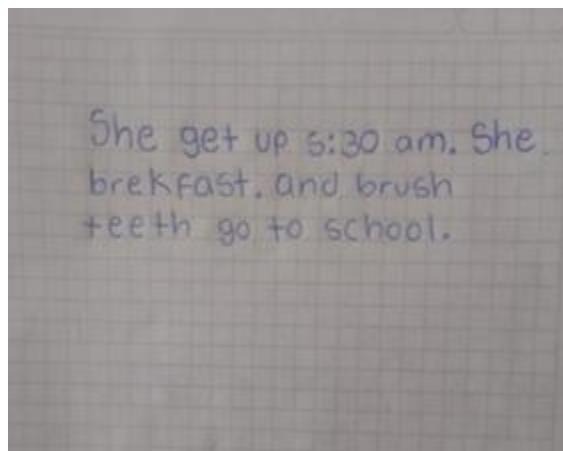 She get up 5:30 am. She
brekfast. and brush
teeth go to school.